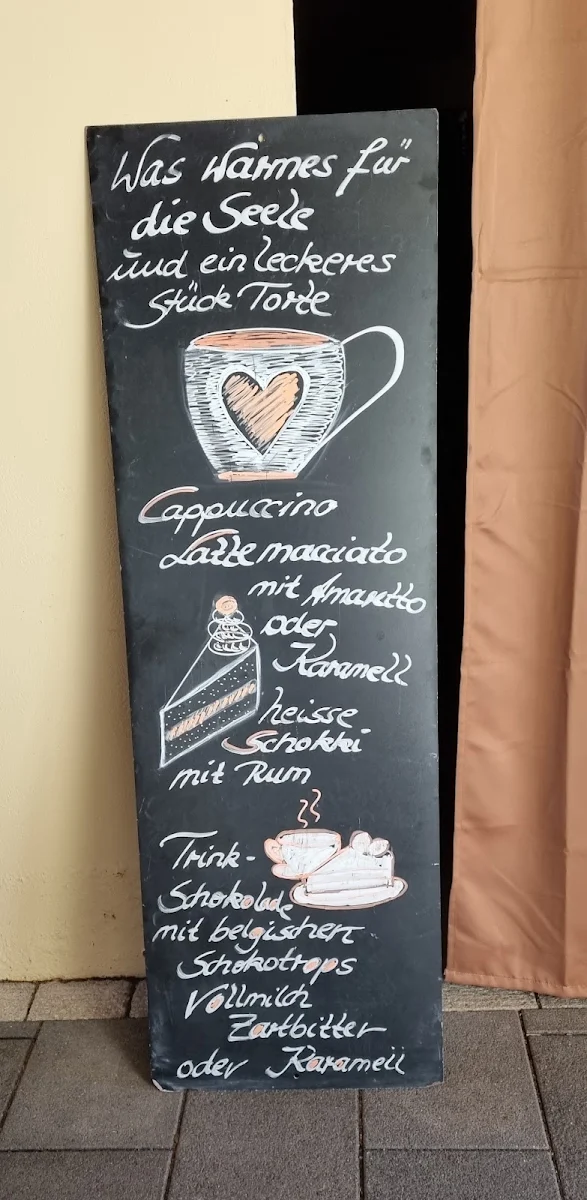 Was warmes für
die Seele
und ein leckeres
Stück Torte
Cappuccino
Latte macciato
mit Amaretto
oder
Karamell
heisse
Schokki
mit Rum
Trink-
Schokolade
mit belgischen
Schokotrops
Vollmilch
Zartbitter
oder Karamell